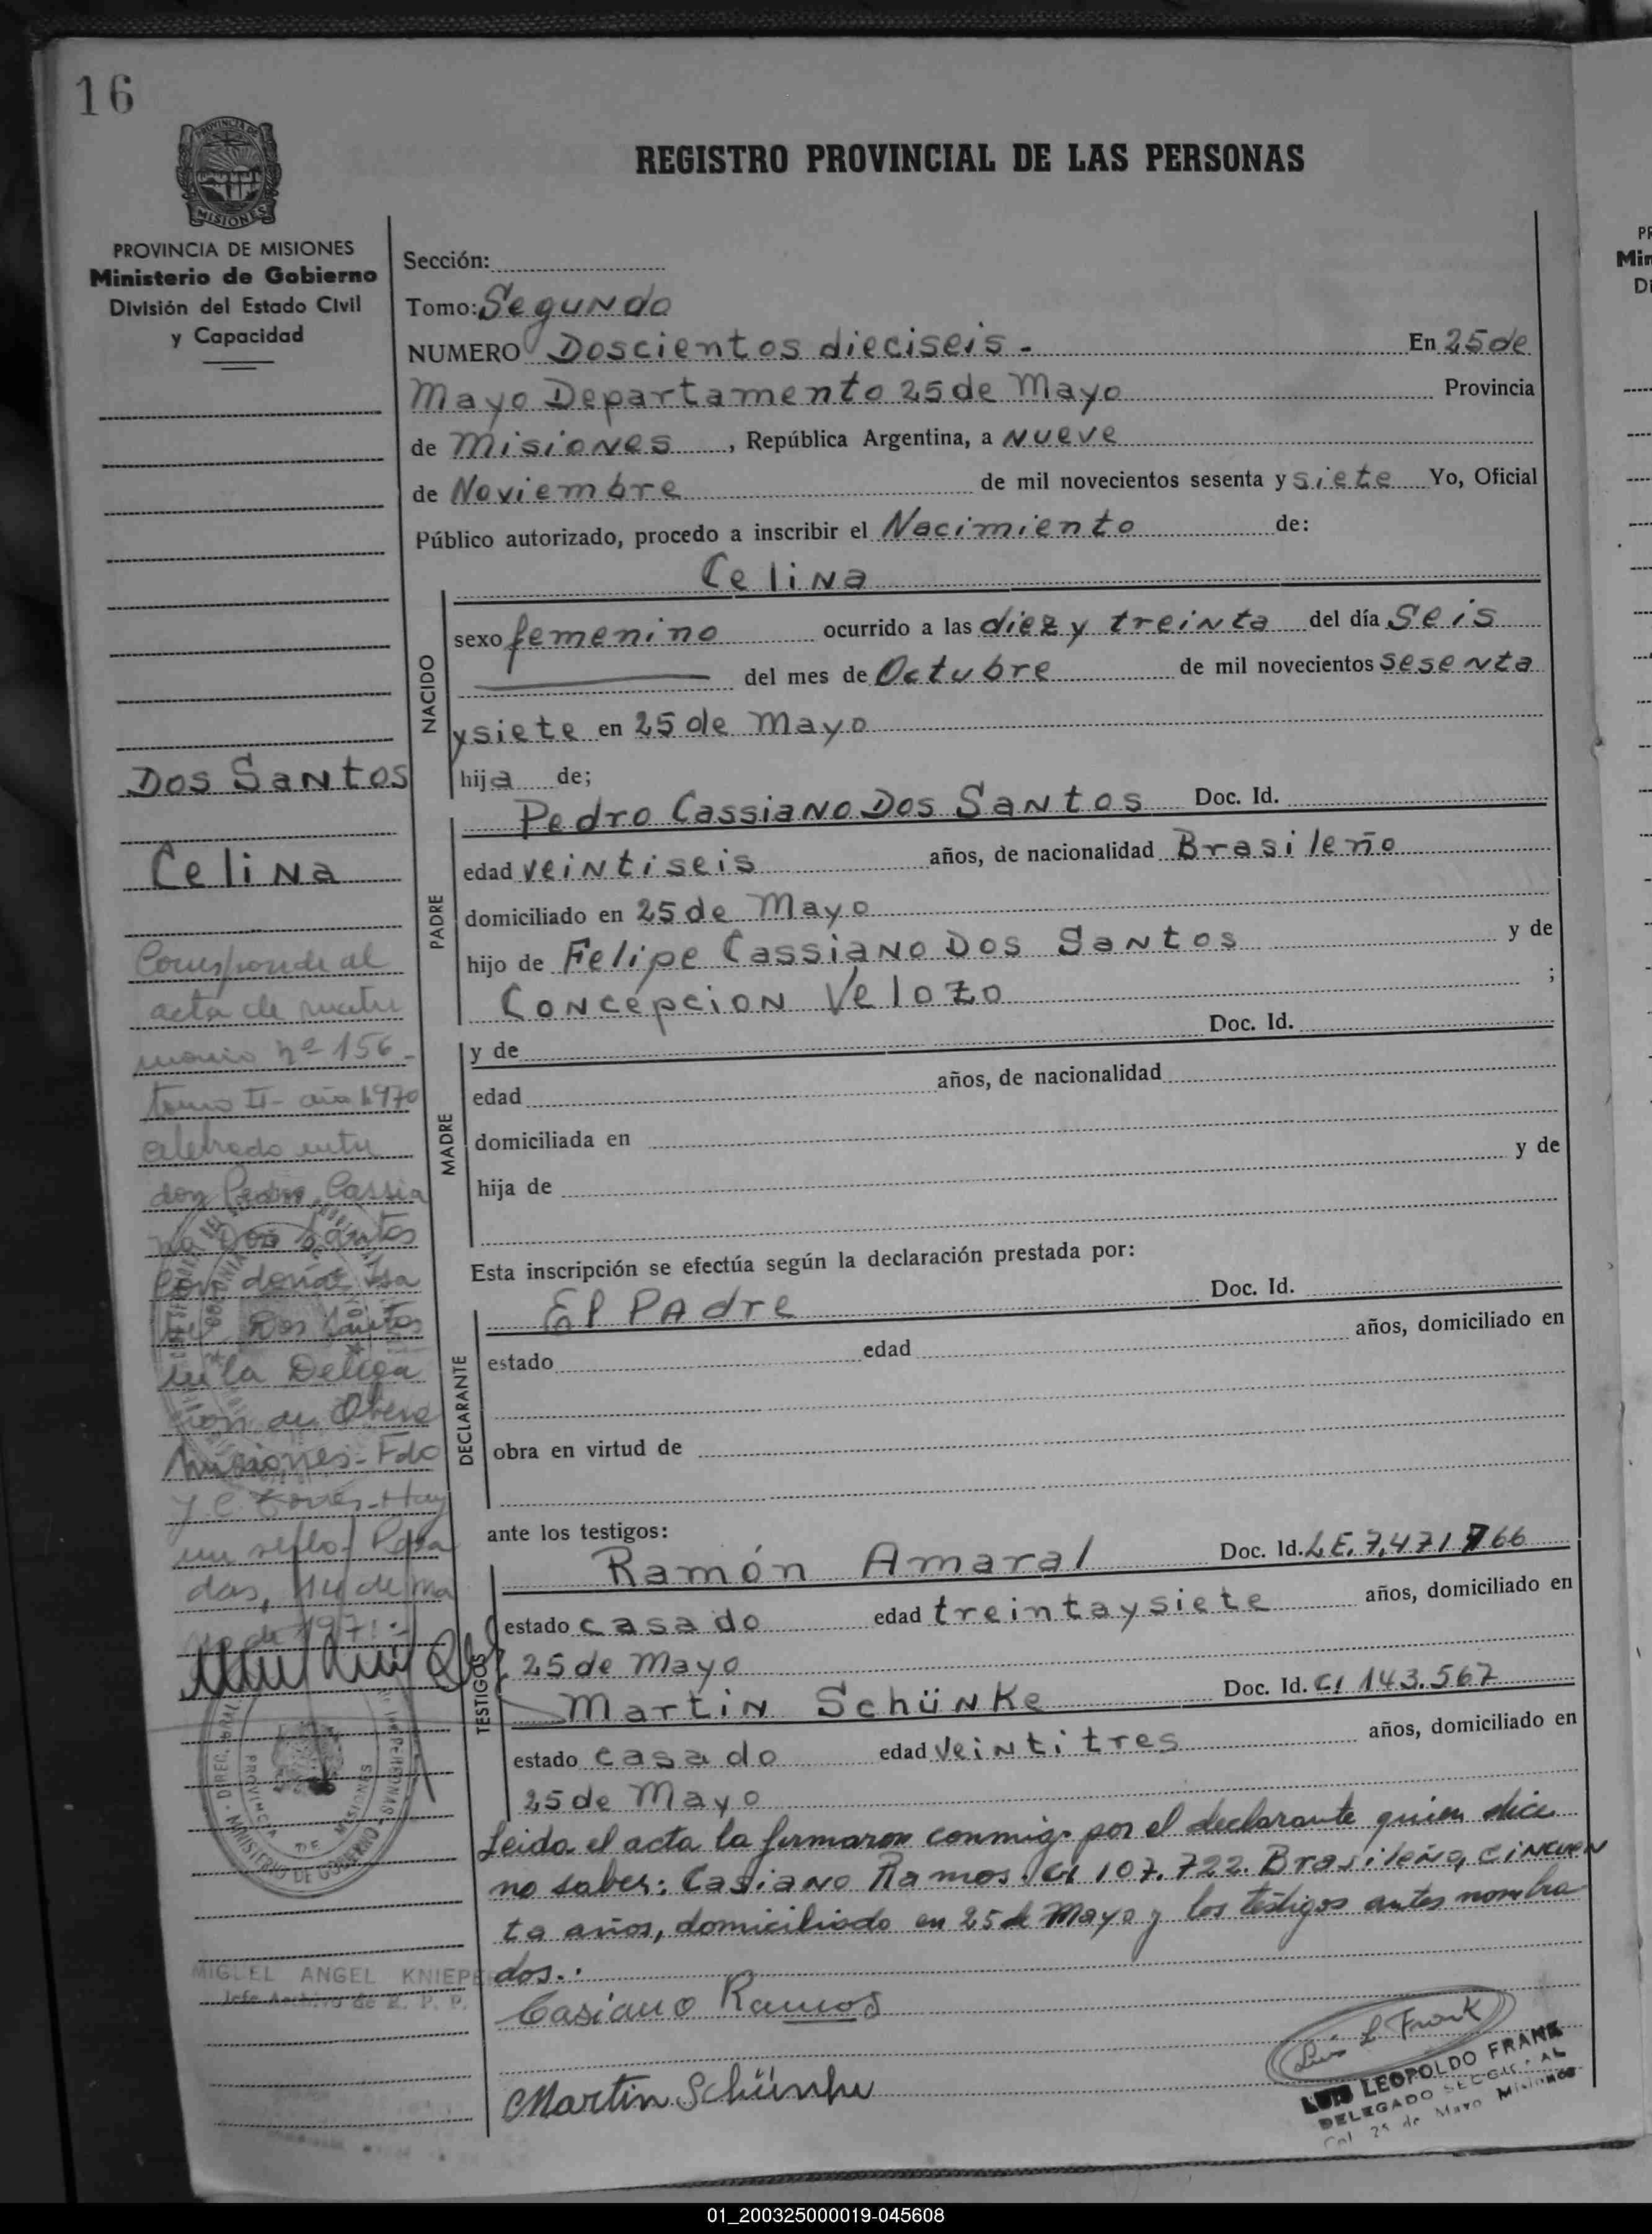 16
PROVINCIA DE
MISIONES
REGISTRO PROVINCIAL DE LAS PERSONAS
PROVINCIA DE MISIONES
Ministerio de Gobierno
División del Estado Civil
y Capacidad
Sección:
Tomo: Segundo
NUMERO Doscientos dieciseis.- En 25 de
Mayo Departamento 25 de Mayo Provincia
de Misiones, República Argentina, a Nueve
de Noviembre de mil novecientos sesenta y siete Yo, Oficial
Público autorizado, procedo a inscribir el Nacimiento de:
NACIDO
Celina
sexo femenino ocurrido a las diez y treinta del día Seis
del mes de Octubre de mil novecientos sesenta
y siete en 25 de Mayo
hija de;
PADRE
Pedro Cassiano Dos Santos Doc. Id.
edad veintiseis años, de nacionalidad Brasileño
domiciliado en 25 de Mayo
hijo de Felipe Cassiano Dos Santos y de
Concepcion Velozo ;
MADRE
y de Doc. Id.
edad años, de nacionalidad
domiciliada en
hija de y de
Esta inscripción se efectúa según la declaración prestada por:
DECLARANTE
El Padre Doc. Id.
estado edad años, domiciliado en
obra en virtud de
ante los testigos:
TESTIGOS
Ramón Amaral Doc. Id. LE. 7.471.766
estado casado edad treinta y siete años, domiciliado en
25 de Mayo
Martin Schünke Doc. Id. CI 143.567
estado casado edad veintitres años, domiciliado en
25 de Mayo
Leida el acta la firmaron conmigo por el declarante quien dice
no saber: Casiano Ramos CI 107.722. Brasileño, cincuen
ta años, domiciliado en 25 de Mayo y los testigos antes nombra
dos.
Casiano Ramos
Martin Schünke
Luis L Frank
LUIS LEOPOLDO FRANK
DELEGADO SECCIONAL
Col. 25 de Mayo Misiones
Dos Santos
Celina
Corresponde al
acta de matri
monio nº 156-
tomo II- año 1970
celebrado entre
don Pedro Cassia
no Dos Santos
con doña
Dos Santos
en la Delega
cion de Obera
Misiones- Fdo
J. C. Hay
un sello- Posa
das, 14 de ma
yo de 1971.-
MINISTERIO DE GOBIERNO
PROVINCIA DE MISIONES
MIGUEL ANGEL KNIEPE
Jefe Archivo de R. P. P.
01_200325000019-045608